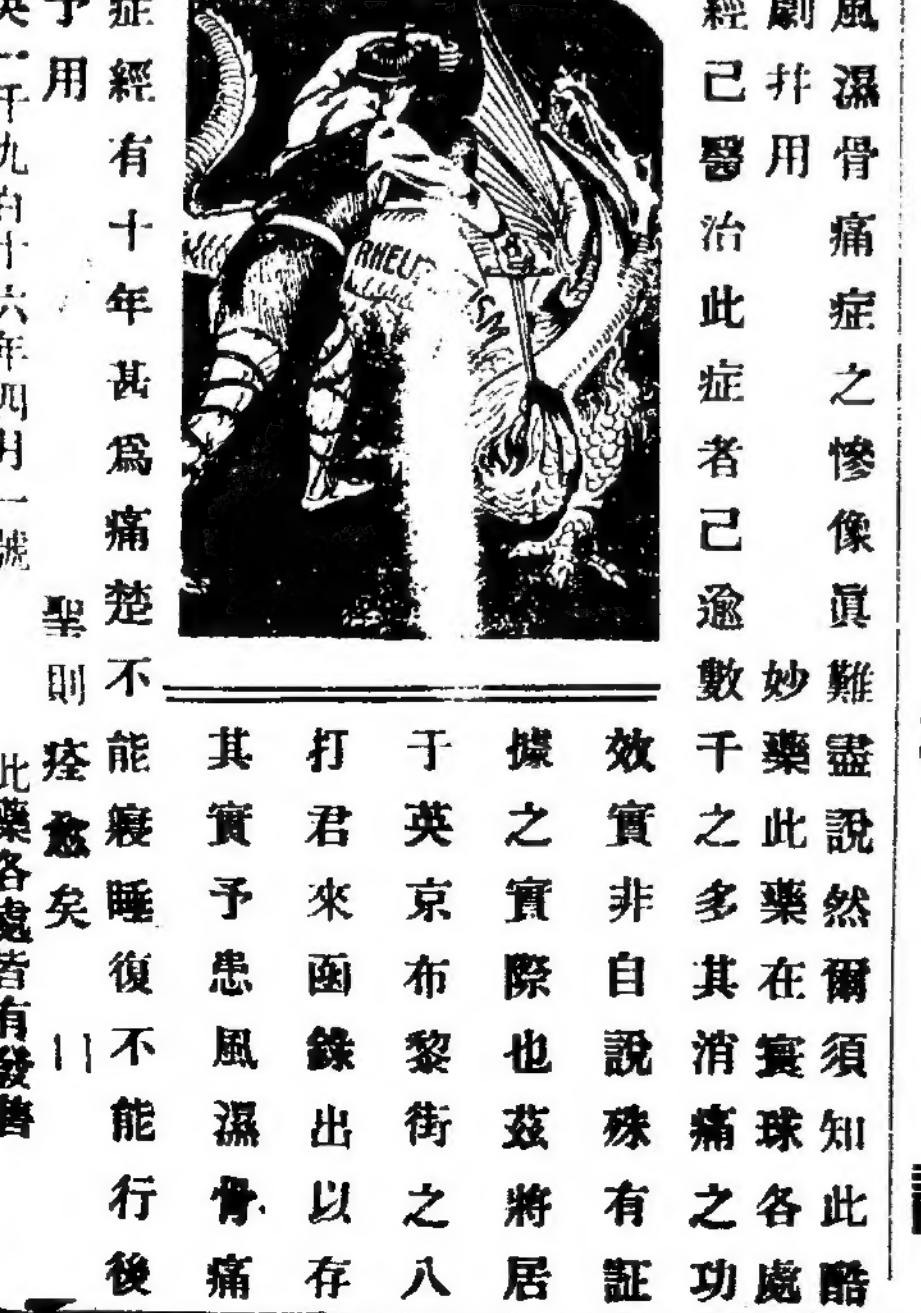 風濕骨痛症之慘像眞難盡說然爾須知此酷
劇井用 妙藥此藥在寰球各處
經已醫治此症者己逾數千之多其消痛之功
效實非自說殊有証
據之實際也茲將居
于英京布黎街之八
打君來函錄出以存
其實予患風濕骨痛
症經有十年甚爲痛楚不能寢睡復不能行後
予用 聖則痊愈矣
英一千九百十六年四月一號 此藥各處皆有發售
RHEU
SM